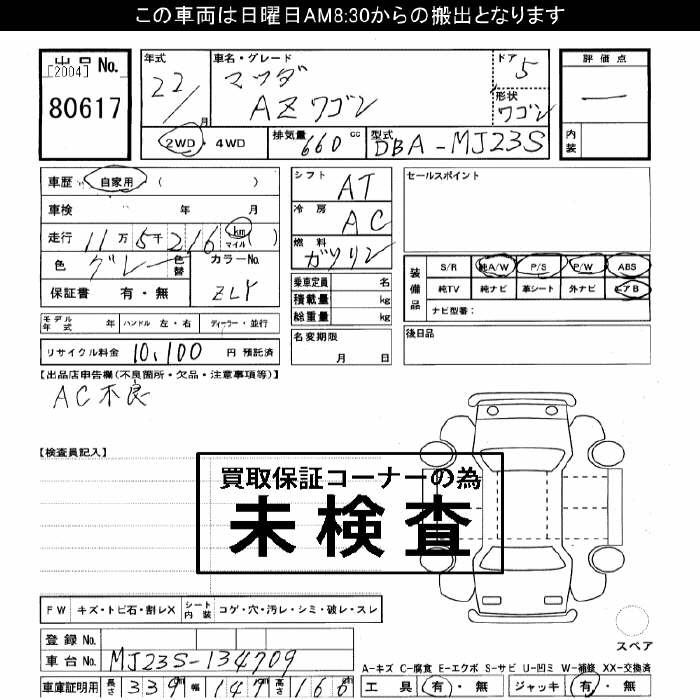 この車両は日曜日AM8:30からの搬出となります
出品 No.
[2004]
80617
年式 22/ 月
車名・グレード マツダ AZワゴン
ドア 5
形状 ワゴン
評価点 —
内装
2WD・4WD 排気量 660 cc 型式 DBA-MJ23S
車歴 自家用 ( )
車検 年 月
走行 11万5千216 km マイル ( )
色 グレー 色替 カラーNo. ZLY
保証書 有・無
シフト AT
冷房 AC
燃料 ガソリン
乗車定員 名
積載量 kg
総重量 kg
セールスポイント
装備品 S/R 純A/W P/S P/W ABS
純TV 純ナビ 革シート 外ナビ エアB
ナビ型番:
モデル年式 年 ハンドル 左・右 ディーラー・並行
名変期限 月 日
後日品
リサイクル料金 10,100 円 預託済
【出品店申告欄(不良箇所・欠品・注意事項等)】
AC不良
【検査員記入】
買取保証コーナーの為
未検査
FW キズ・トビ石・割レX シート内装 コゲ・穴・汚レ・シミ・破レ・スレ
スペア
登録 No.
車台 No. MJ23S-134709
A-キズ C-腐食 E-エクボ S-サビ U-凹ミ W-補修 XX-交換済
車庫証明用 長さ 339 幅 147 高さ 166
工具 有・無 ジャッキ 有・無